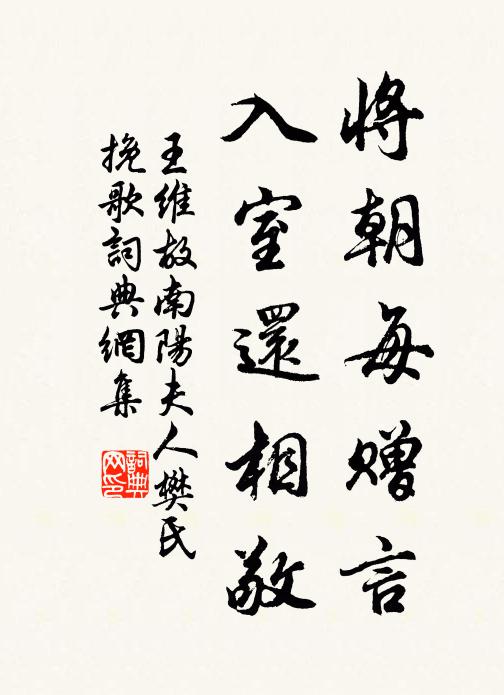 將朝每贈言
入室還相敬
王維故南陽夫人樊氏
挽歌詞典網集
詞典网印